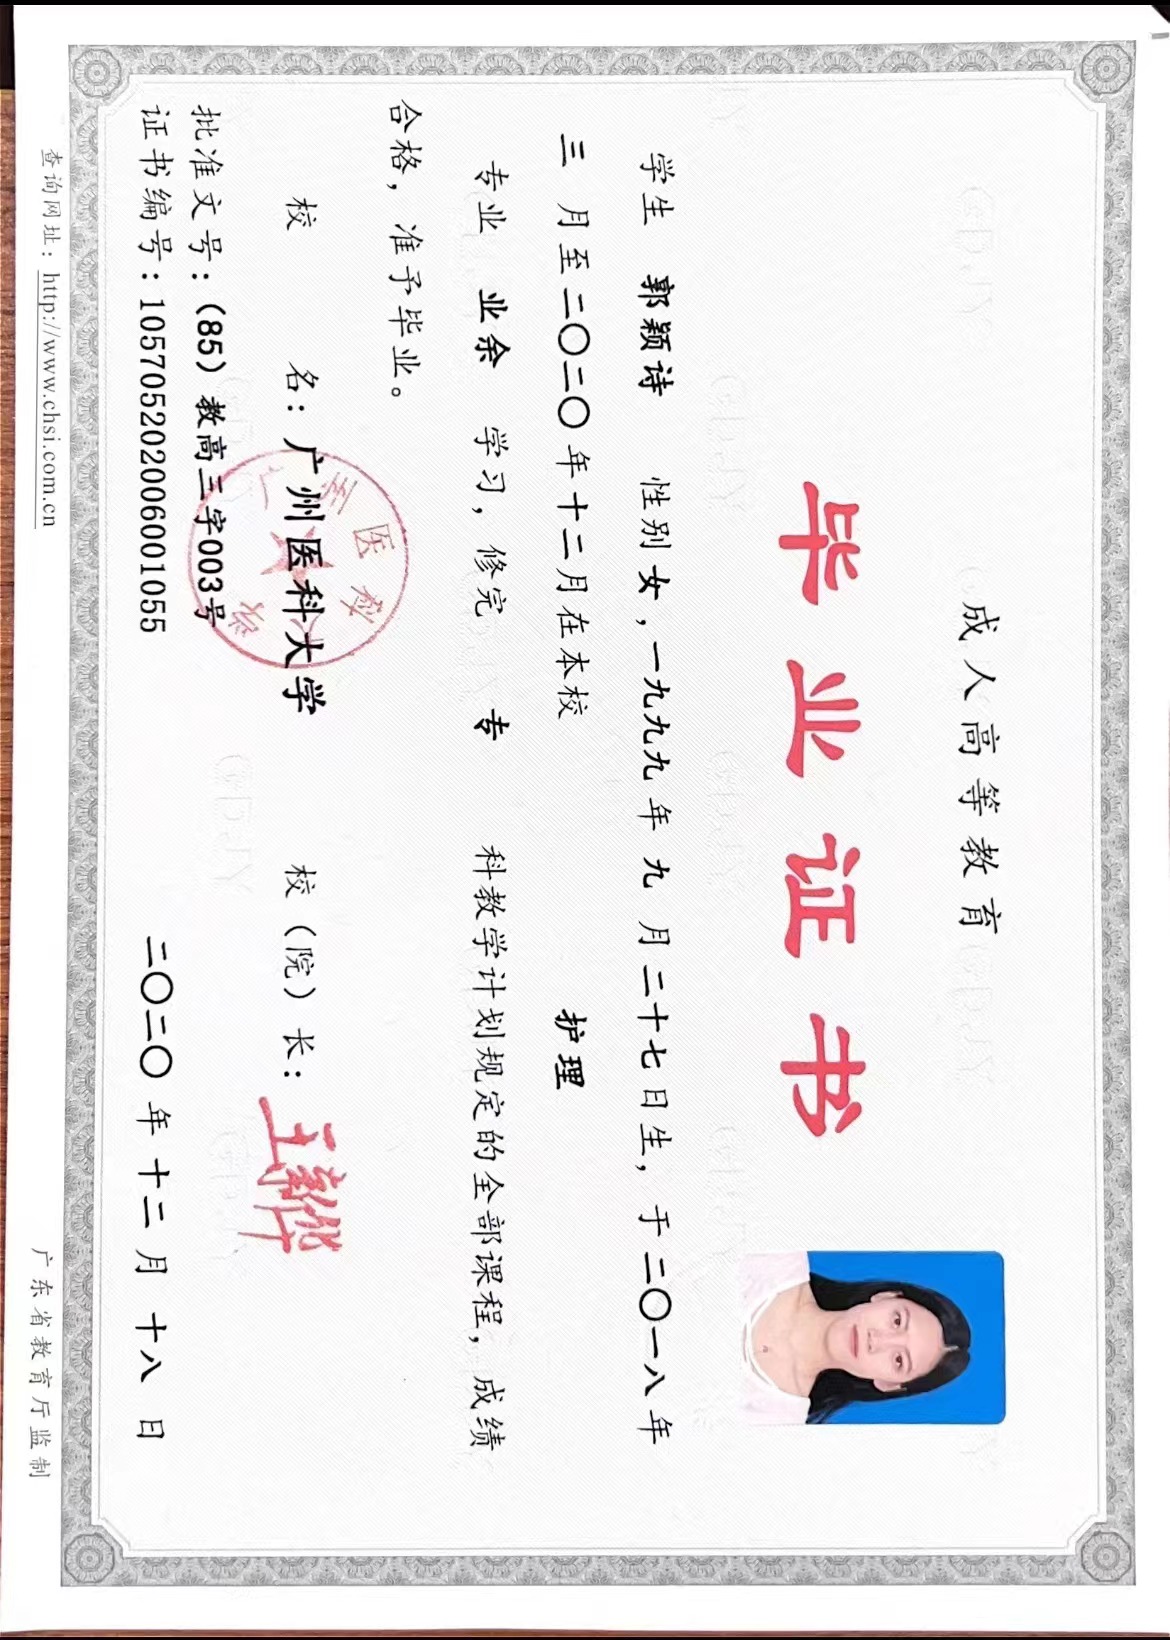 成人高等教育
毕业证书
学生 郭颖诗 性别女，一九九九年 九 月二十七日生，于二〇一八年
三 月至二〇二〇年十二月在本校 护理
专业 业余 学习，修完 专 科教学计划规定的全部课程，成绩
合格，准予毕业。
校 名：广州医科大学 校（院）长：
批准文号：（85）教高三字003号
证书编号：105705202006001055 二〇二〇 年 十二 月 十八 日
查询网址：http://www.chsi.com.cn 广东省教育厅监制